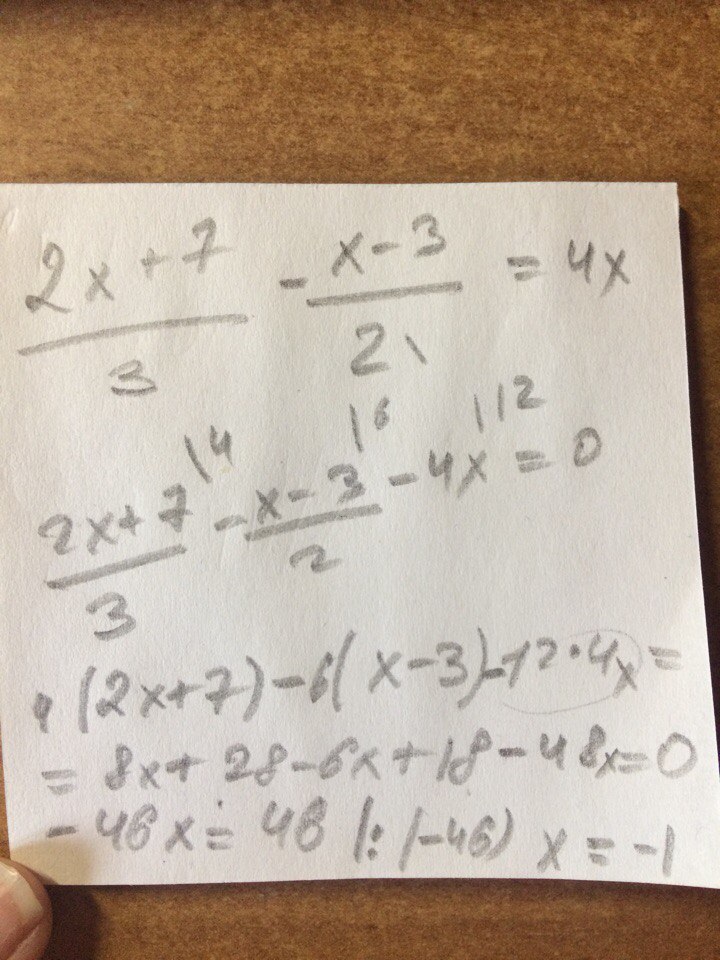 (2x+7)/3 - (x-3)/2 = 4x
(2x+7)/3 \4 - (x-3)/2 |6 - 4x |12 = 0
4(2x+7)-6(x-3)-12·4x=
= 8x+28-6x+18-48x=0
-46x=46 |:(-46) x=-1